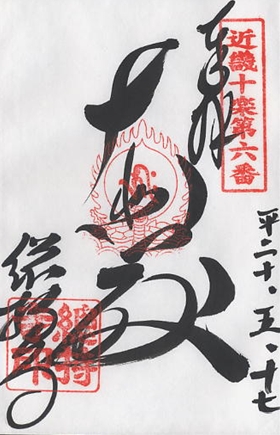 近畿十楽第六番
奉拝
平二十・五・十七
大悲殿
総持寺
總持寺印